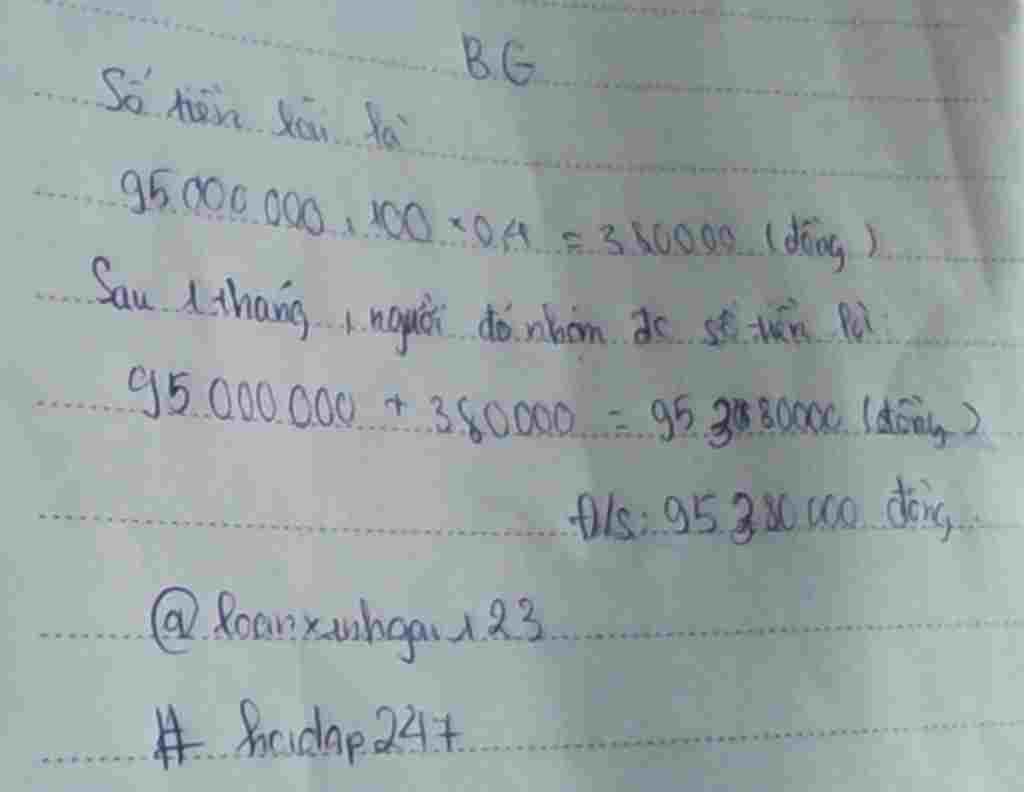 B.G
Số tiền lãi là
95.000.000 : 100 × 0,4 = 380000 (đồng)
Sau 1 tháng, người đó nhận đc số tiền là:
95.000.000 + 380000 = 95.380000 (đồng)
Đ/s: 95.380000 đồng
@loanxinhgai123
# hoidap247